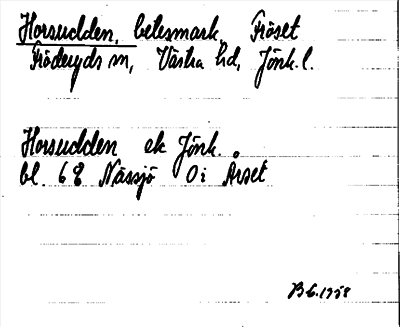 Horsudden, betesmark, Fröset
Fröderyds sn, Västra hd, Jönk.l.
Horsudden ek Jönk.
bl. 68 Nässjö Oi Årset
B.G.1958